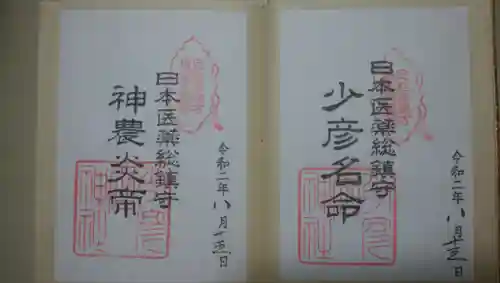 日本医薬総鎮守
少彦名命
令和二年八月十三日
日本医薬総鎮守
神農炎帝
令和二年八月十三日